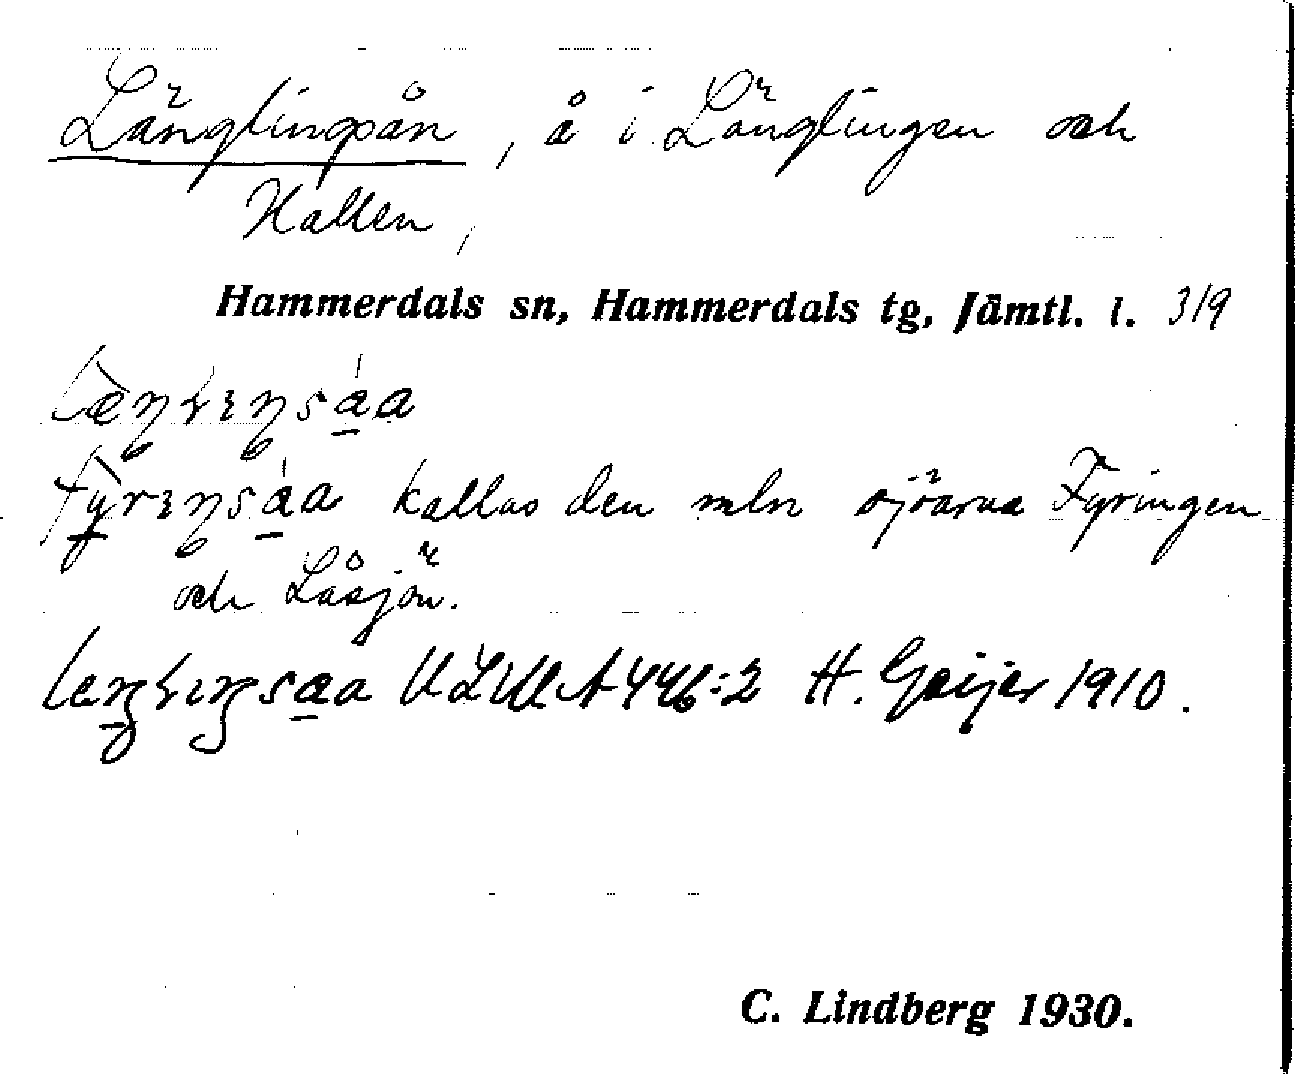 Länglingsån, å i Länglingen och
Hallen,
Hammerdals sn, Hammerdals tg, Jämtl. l. 319
kallas den mln sjöarna Fyringen
och Låsjön.
ULMA 446:2 H. Geijer 1910.
C. Lindberg 1930.